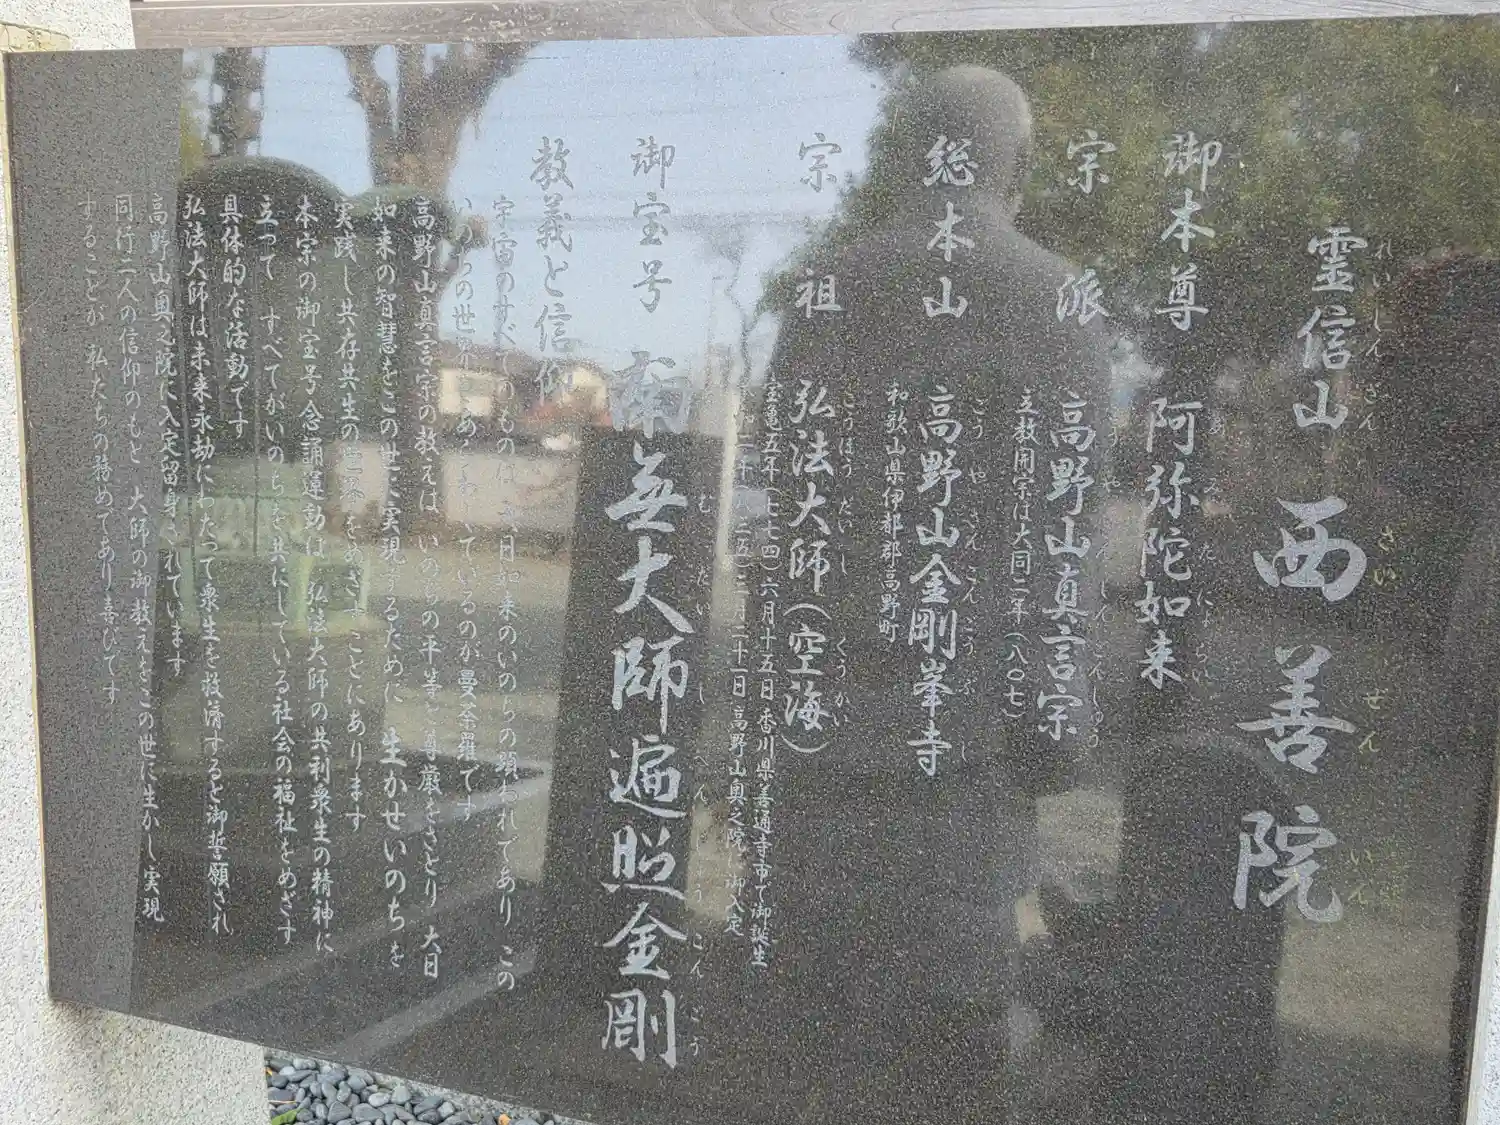 霊信山 西善院
れいしんざん さいぜんいん
御本尊 阿弥陀如来
あみだにょらい
宗派 高野山真言宗
こうやさんしんごんしゅう
立教開宗は大同二年(八〇七)
総本山 高野山金剛峯寺
こうやさんこんごうぶじ
和歌山県伊都郡高野町
宗祖 弘法大師(空海)
こうぼうだいし くうかい
宝亀五年(七七四)六月十五日 香川県善通寺市で御誕生
二年(八三五)三月二十一日 高野山奥之院に御入定
御宝号 南無大師遍照金剛
むだいしへんじょうこんごう
教義と信仰
宇宙のすべてのものは 大日如来のいのちの顕われであり この
いのちの世界をあらわしているのが曼荼羅です
高野山真言宗の教えは いのちの平等と尊厳をさとり 大日
如来の智慧をこの世に実現するために 生かせいのちを
実践し共存共生の世界をめざすことにあります
本宗の御宝号念誦運動は 弘法大師の共利衆生の精神に
立って すべてがいのちを共にしている社会の福祉をめざす
具体的な活動です
弘法大師は未来永劫にわたって衆生を救済すると御誓願され
高野山奥之院に入定留身されています
同行二人の信仰のもと 大師の御教えをこの世に生かし実現
することが 私たちの務めであり喜びです